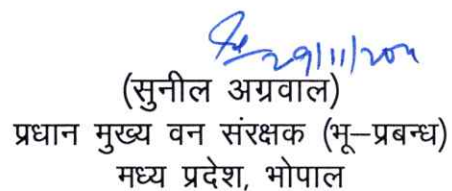 (सुनील अग्रवाल)
प्रधान मुख्य वन संरक्षक (भू–प्रबन्ध)
मध्य प्रदेश, भोपाल